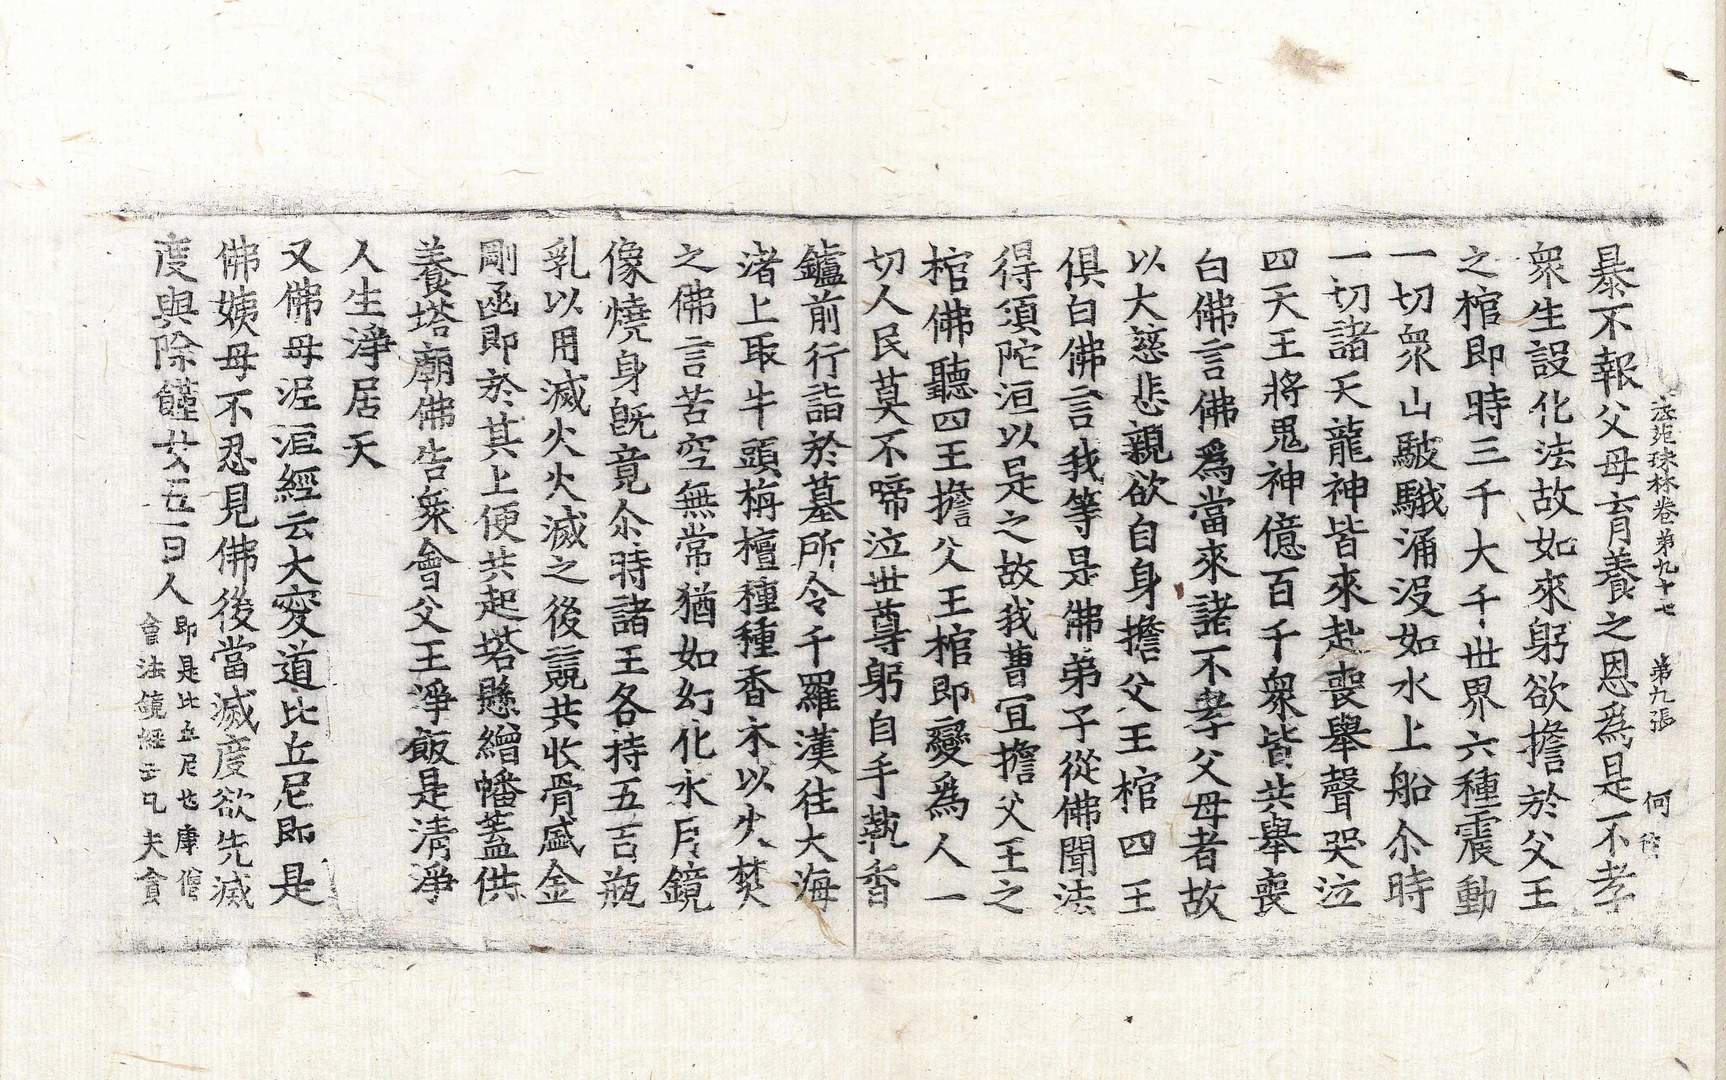 法苑珠林卷第九十七 第九張 何
暴不報父母育養之恩爲是不孝
衆生設化法故如來躬欲擔於父王
之棺即時三千大千世界六種震動
一切衆山駊騀涌沒如水上船尒時
一切諸天龍神皆來赴喪舉聲哭泣
四天王將鬼神億百千衆皆共舉喪
白佛言佛爲當來諸不孝父母者故
以大慈悲親欲自身擔父王棺四王
俱白佛言我等是佛弟子從佛聞法
得須陀洹以是之故我曹宜擔父王之
棺佛聽四王擔父王棺即變爲人一
切人民莫不啼泣世尊躬自手執香
鑪前行詣於墓所令千羅漢往大海
渚上取牛頭栴檀種種香木以火焚
之佛言苦空無常猶如幻化水月鏡
像燒身旣竟尒時諸王各持五百瓶
乳以用滅火火滅之後競共收骨盛金
剛函即於其上便共起塔懸繒幡蓋供
養塔廟佛告衆會父王淨飯是清淨
人生淨居天
又佛母泥洹經云大愛道比丘尼即是
佛姨母不忍見佛後當滅度欲先滅
度與除饉女五百人
即是比丘尼也庫僧
會法鏡經云凡夫貪